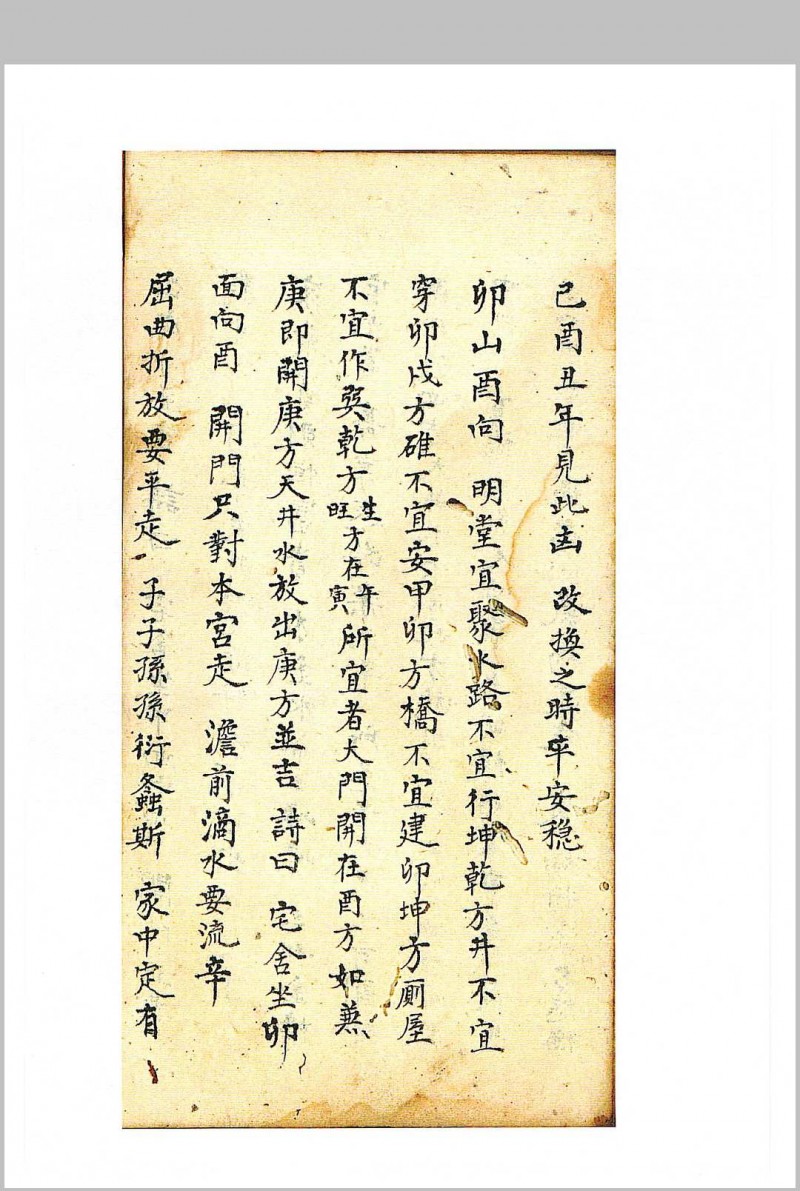 己酉丑年見此凶 改換之時平安穩
卯山酉向 明堂宜聚水路不宜行坤乾方井不宜
穿卯戌方碓不宜安甲卯方橋不宜建卯坤方厠屋
不宜作巽乾方生旺方在午寅所宜者大門開在酉方如兼
庚即開庚方天井水放出庚方並吉 詩曰 宅舍坐卯
面向酉 開門只對本宮走 澹前滴水要流辛
屈曲折放要平走 子子孫孫衍螽斯 家中定有